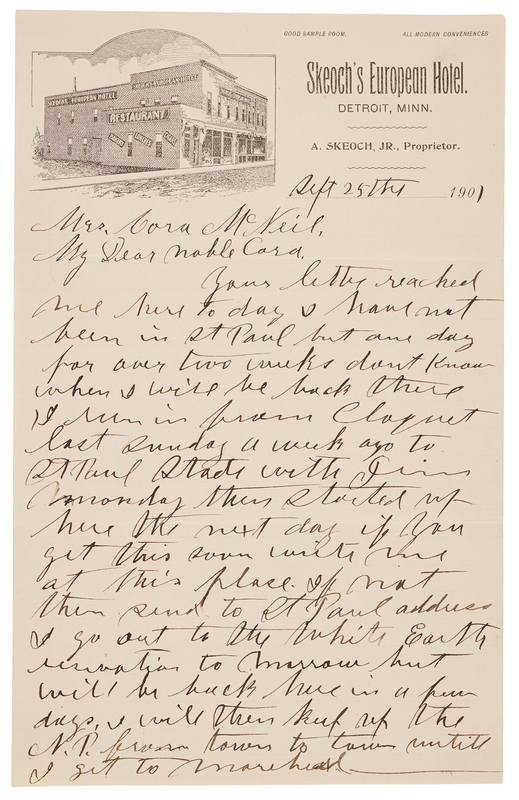 GOOD SAMPLE ROOM.
ALL MODERN CONVENIENCES
SKEOCH'S EUROPEAN HOTEL
SKEOCH'S EUROPEAN HOTEL
RESTAURANT
Skeoch's European Hotel.
DETROIT, MINN.
A. SKEOCH, JR., Proprietor.
Sept 25th 1901
Mrs. Cora McNeil,
My Dear noble Cora,
Your letter reached
me here to day I have not
been in St Paul but one day
for over two weeks dont Know
when I will be back there
I run in from Cloquet
last sunday a week ago to
St Paul Staid with Jim
monday then started up
here the next day if you
get this soon write me
at this place If not
then send to St Paul address
I go out to the White Earth
reservation to morrow but
will be back here in a few
days, I will then keep up the
N.P. from town to town untill
I get to Morehead